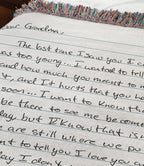 Dear Grandma,
The last time I saw you I
was too young... I wanted to tell
and how much you meant to m
&, and It hurts that you
soon... I want to know th
be there to see me becom
day, but I know that isn
are still where we pu
want to tell you I love you a
day I don't